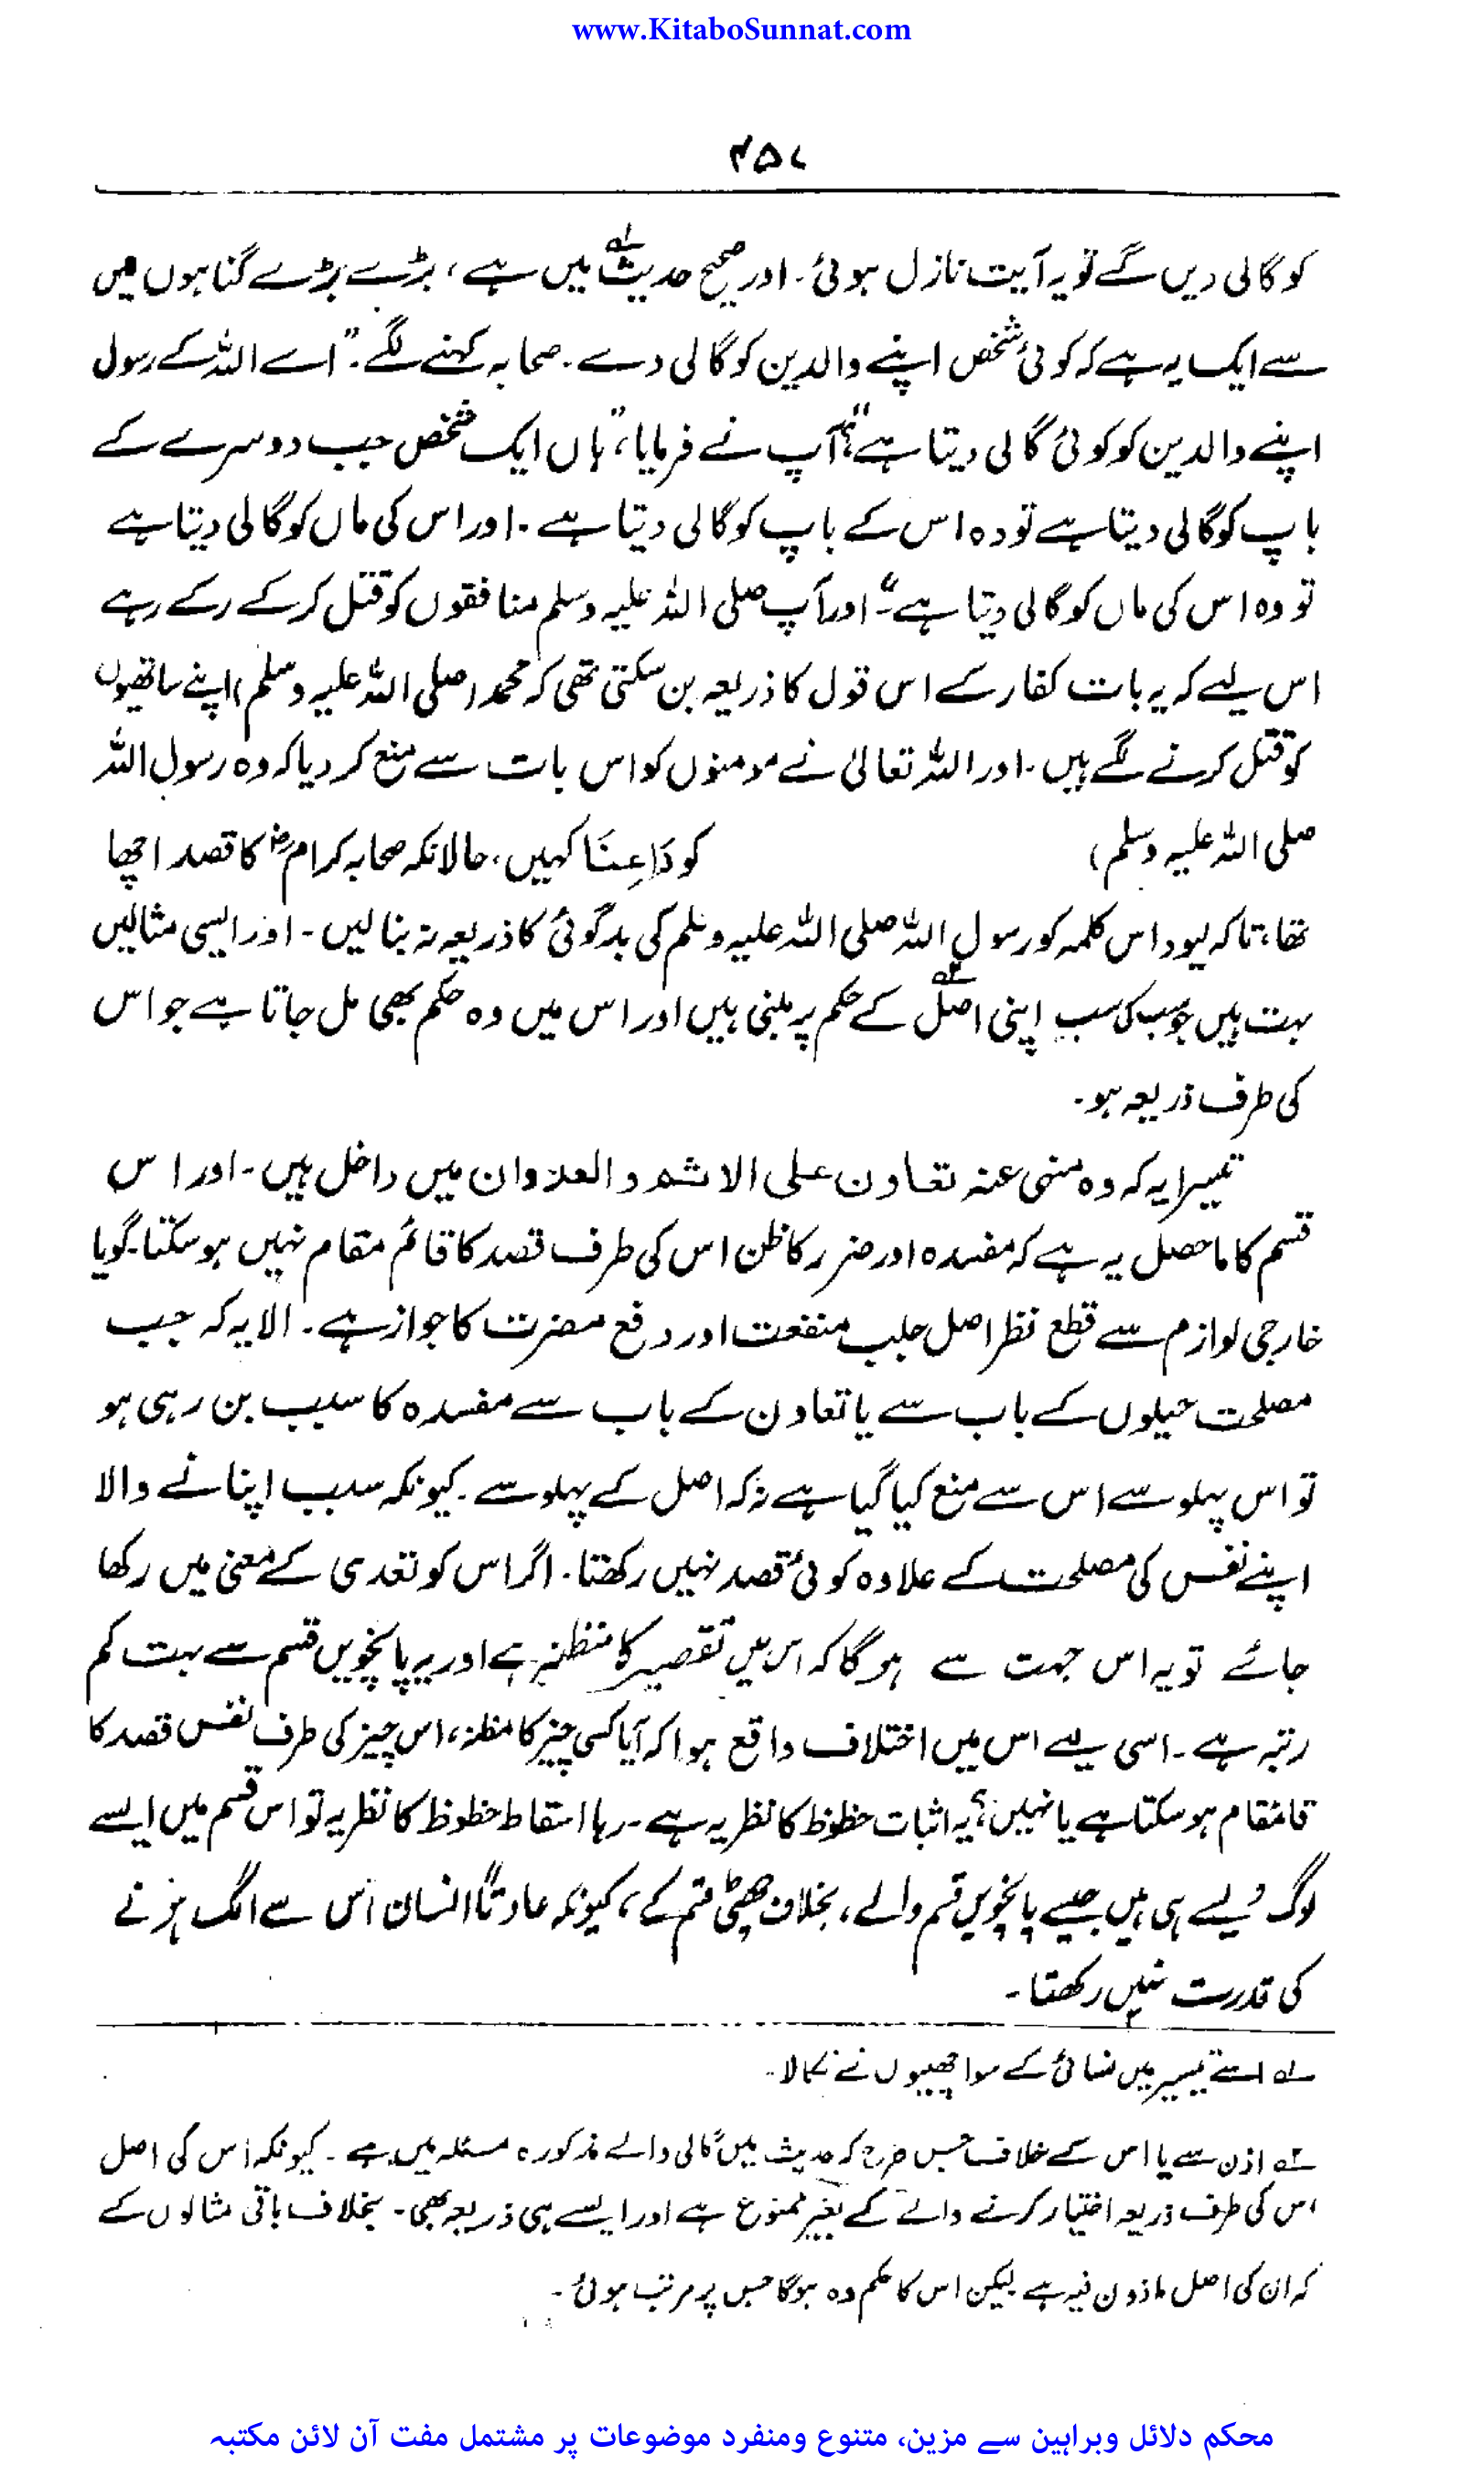 www.KitaboSunnat.com
۴۵۷
کو گالی دیں گے تو یہ آیت نازل ہوئی۔ اور صحیح حدیث۱ میں ہے، بڑے بڑے گناہوں میں
سے ایک یہ ہے کہ کوئی شخص اپنے والدین کو گالی دے۔ صحابہ کہنے لگے۔ "اے اللہ کے رسول
اپنے والدین کو کوئی گالی دیتا ہے"؟ آپ نے فرمایا، "ہاں ایک شخص جب دوسرے کے
باپ کو گالی دیتا ہے تو وہ اس کے باپ کو گالی دیتا ہے۔ اور اس کی ماں کو گالی دیتا ہے
تو وہ اس کی ماں کو گالی دیتا ہے"۔ اور آپ صلی اللہ علیہ وسلم منافقوں کو قتل کرکے رکے رہے
اس لیے کہ یہ بات کفار کے اس قول کا ذریعہ بن سکتی تھی کہ محمد (صلی اللہ علیہ وسلم) اپنے ساتھیوں
کو قتل کرنے لگے ہیں۔ اور اللہ تعالیٰ نے مومنوں کو اس بات سے منع کر دیا کہ وہ رسول اللہ
صلی اللہ علیہ وسلم) کو رَاعِنَا کہیں، حالانکہ صحابہ کرامؓ کا قصد اچھا
تھا، تاکہ یہود اس کلمہ کو رسول اللہ صلی اللہ علیہ وسلم کی بدگوئی کا ذریعہ نہ بنا لیں۔ اور ایسی مثالیں
بہت ہیں جو سب کی سب اپنی اصل۲ کے حکم پر مبنی ہیں اور اس میں وہ حکم بھی مل جاتا ہے جو اس
کی طرف ذریعہ ہو۔
تیسرا یہ کہ وہ منہی عنہ تعاون علی الاثم و العدوان میں داخل ہیں۔ اور اس
قسم کا ماحصل یہ ہے کہ مفسدہ اور ضرر کا ظن اس کی طرف قصد کا قائم مقام نہیں ہو سکتا۔ گویا
خارجی لوازم سے قطع نظر اصل جلب منفعت اور دفع مضرت کا جواز ہے۔ الا یہ کہ جب
مصلحت حیلوں کے باب سے یا تعاون کے باب سے مفسدہ کا سبب بن رہی ہو
تو اس پہلو سے اس سے منع کیا گیا ہے نہ کہ اصل کے پہلو سے۔ کیونکہ سبب اپنانے والا
اپنے نفس کی مصلحت کے علاوہ کوئی قصد نہیں رکھتا۔ اگر اس کو تعدی کے معنی میں رکھا
جائے تو یہ اس جہت سے ہو گا کہ اس میں تقصیر کا مظنہ ہے اور یہ پانچویں قسم سے بہت کم
رتبہ ہے۔ اسی لیے اس میں اختلاف واقع ہوا کہ آیا کسی چیز کا مظنہ، اس چیز کی طرف نفس قصد کا
قائمقام ہو سکتا ہے یا نہیں؟ یہ اثبات حظوظ کا نظریہ ہے۔ رہا اسقاط حظوظ کا نظریہ تو اس قسم میں ایسے
لوگ ویسے ہی ہیں جیسے پانچویں قسم والے، بخلاف چھٹی قسم کے، کیونکہ عادتاً انسان اس سے الگ ہونے
کی قدرت نہیں رکھتا۔
۱ اسے تیسیر میں نسائی کے سوا چھیوں نے نکالا۔
۲ اذن سے یا اس کے خلاف جس طرح کہ حدیث میں گالی والے مذکورہ مسئلہ میں ہے۔ کیونکہ اس کی اصل
اس کی طرف ذریعہ اختیار کرنے والے کے بغیر ممنوع ہے اور ایسے ہی ذریعہ بھی۔ بخلاف باقی مثالوں کے
کہ ان کی اصل ماذون فیہ ہے لیکن اس کا حکم وہ ہوگا جس پر مرتب ہوئی۔
محکم دلائل وبراہین سے مزین، متنوع ومنفرد موضوعات پر مشتمل مفت آن لائن مکتبہ